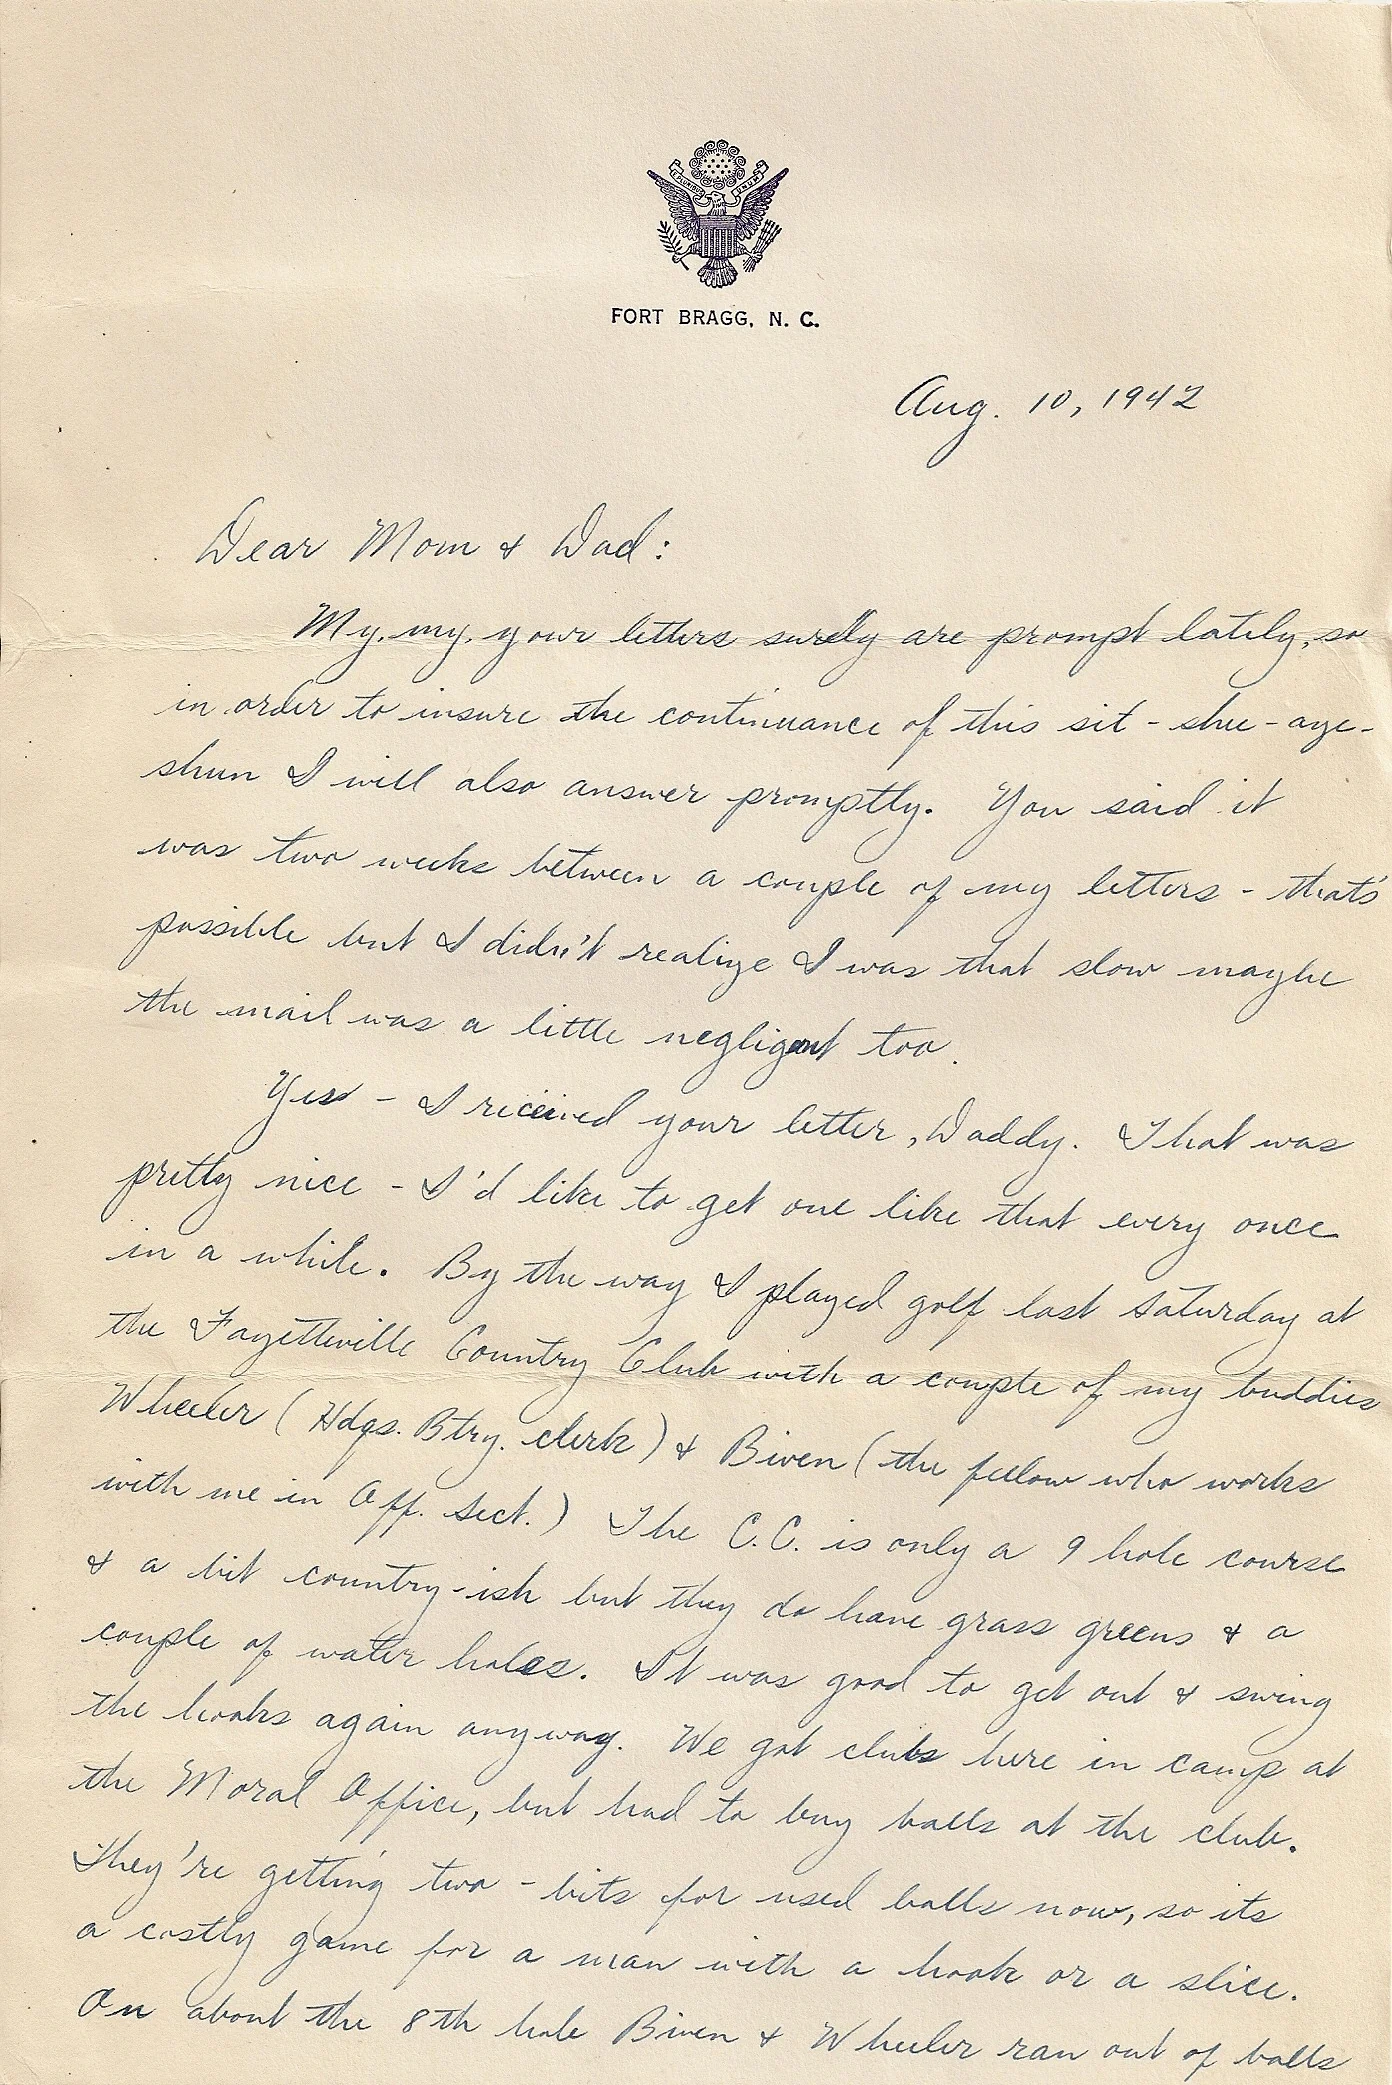 E PLURIBUS UNUM
FORT BRAGG, N. C.
Aug. 10, 1942
Dear Mom & Dad:
My, my, your letters surely are prompt lately, so
in order to insure the continuance of this sit-shu-aye-
shun I will also answer promptly. You said it
was two weeks between a couple of my letters - that's
possible but I didn't realize I was that slow maybe
the mail was a little negligent too.
Yes - I received your letter, Daddy. That was
pretty nice - I'd like to get one like that every once
in a while. By the way I played golf last Saturday at
the Fayetteville Country Club with a couple of my buddies
Wheeler (Hdqs. Btry. clerk) & Biven (the fellow who works
with me in Off. Sect.) The C.C. is only a 9 hole course
& a bit country-ish but they do have grass greens & a
couple of water holes. It was good to get out & swing
the hooks again anyway. We got clubs here in camp at
the Moral Office, but had to buy balls at the club.
They're getting two-bits for used balls now, so its
a costly game for a man with a hook or a slice.
On about the 8th hole Biven & Wheeler ran out of balls